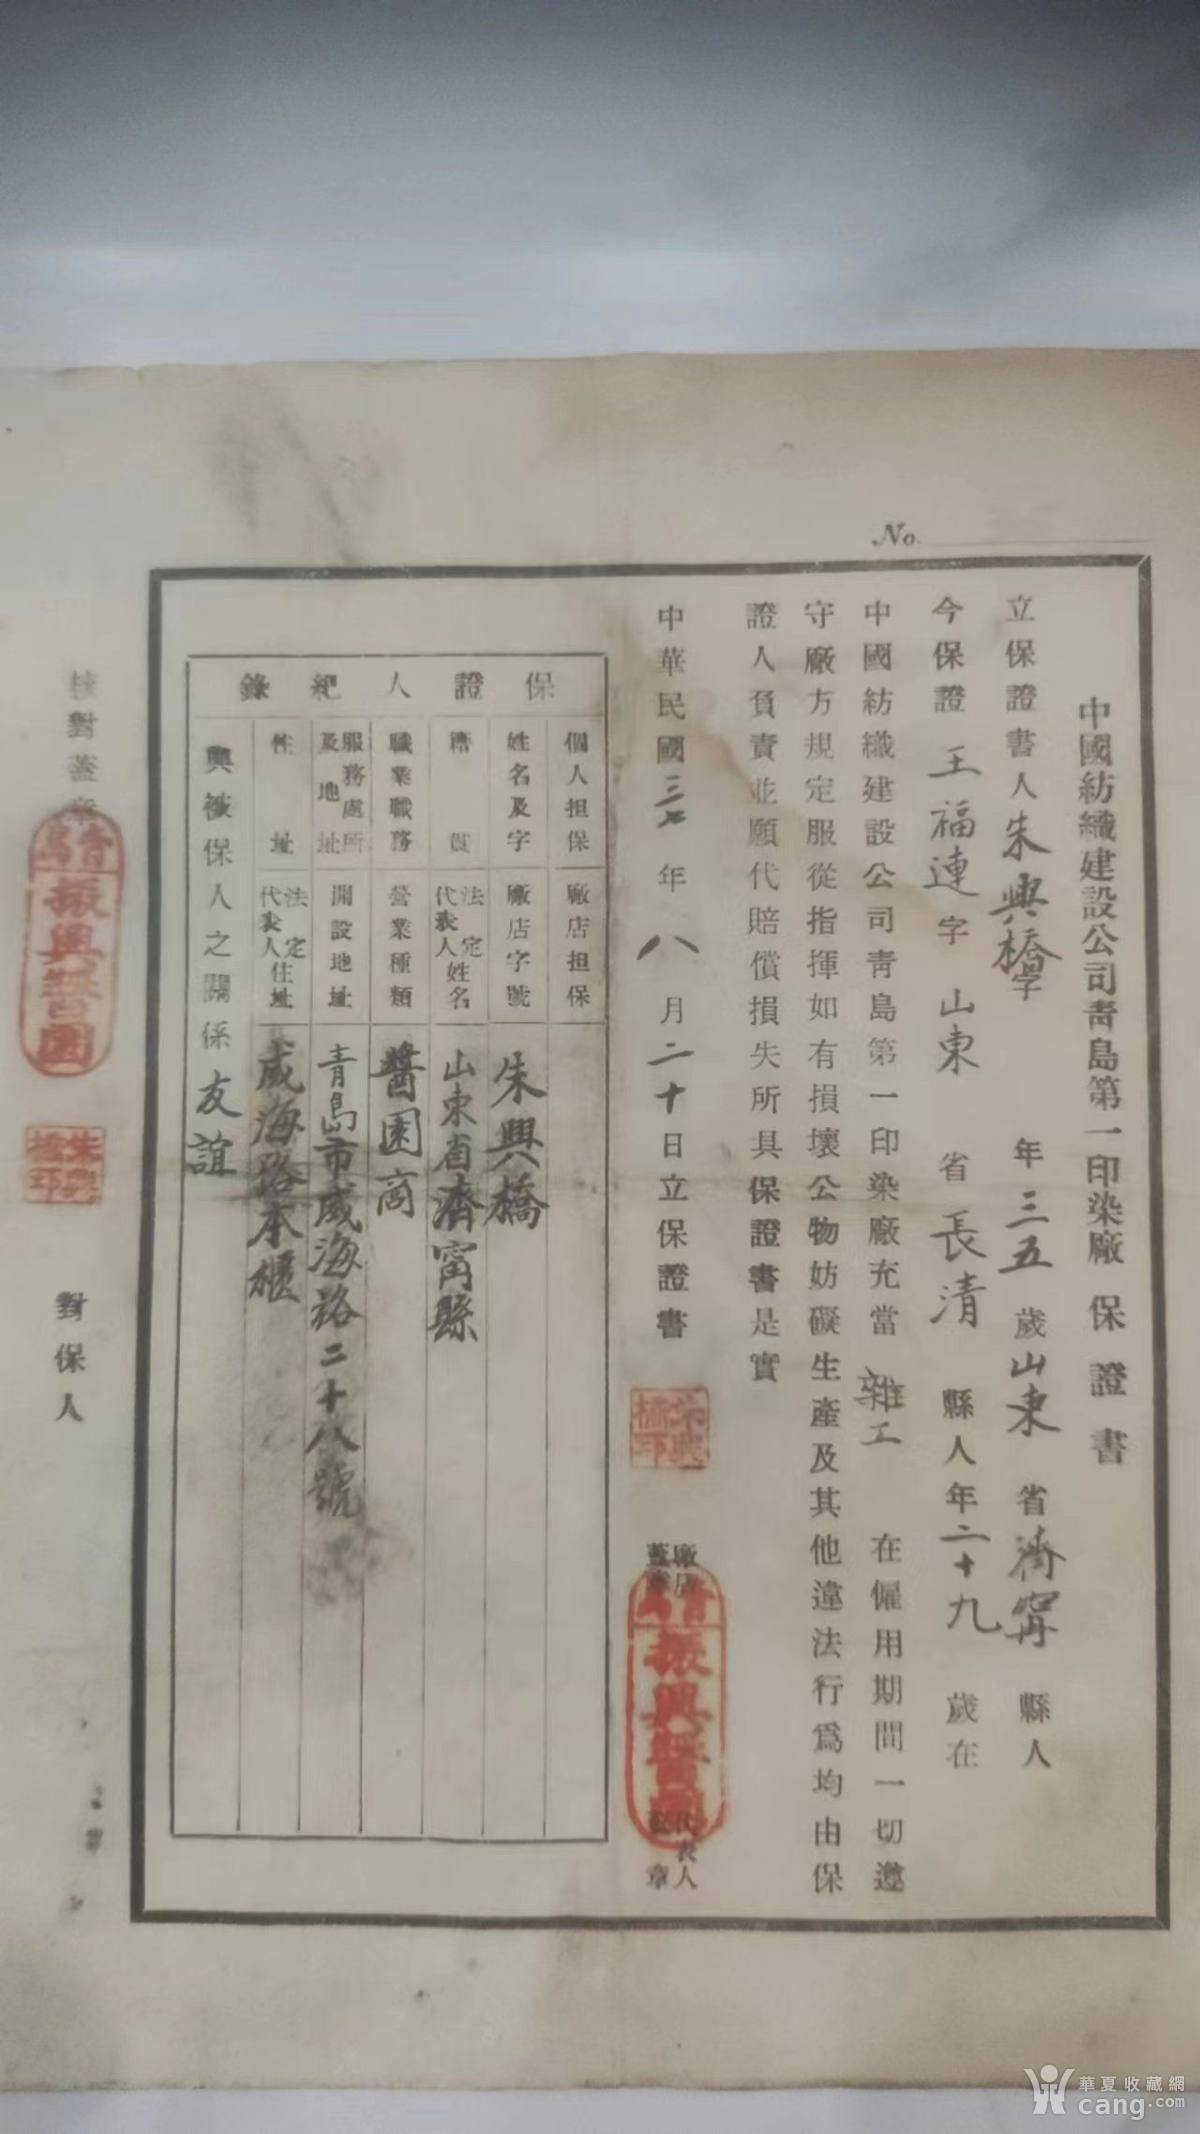 No.
中國紡織建設公司青島第一印染廠保證書
立保證書人朱興橋字 年三五歲山東省濟甯縣人
今保證王福連字 山東省長清縣人年二十九歲在
中國紡織建設公司青島第一印染廠充當雜工在僱用期間一切遵
守廠方規定服從指揮如有損壞公物妨礙生產及其他違法行為均由保
證人負責並願代賠償損失所具保證書是實
中華民國三七年八月二十日立保證書
朱興橋印
廠店蓋章
青島振興醬園
代表人蓋章
保證人紀錄
個人担保 廠店担保
姓名及字 廠店字號 朱興橋
籍貫 法定代表人姓名 山東省濟甯縣
職業職務 營業種類 醬園商
服務處所及地址 開設地址 青島市威海路二十八號
住址 法定代表人住址 威海路本櫃
與被保人之關係 友誼
核對蓋章
青島振興醬園
朱興橋印
對保人
華夏收藏網
cang.com